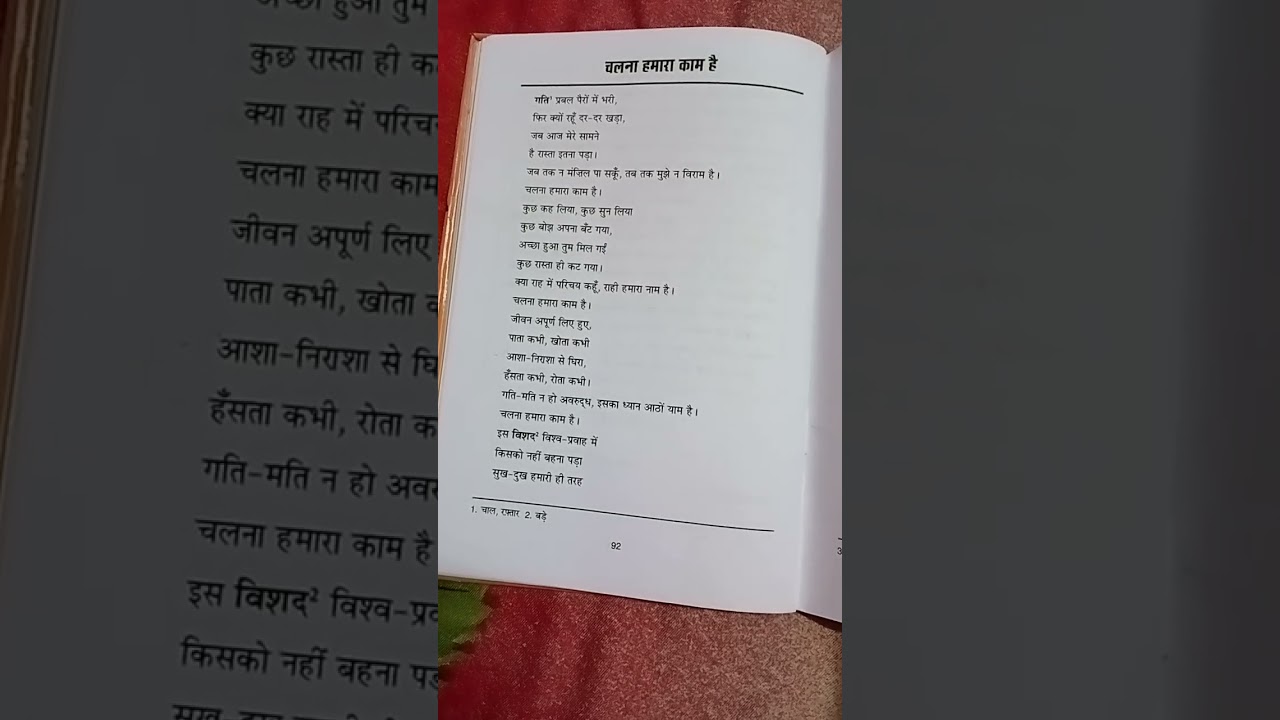 चलना हमारा काम है
गति¹ प्रबल पैरों में भरी,
फिर क्यों रहूँ दर-दर खड़ा,
जब आज मेरे सामने
है रास्ता इतना पड़ा।
जब तक न मंज़िल पा सकूँ, तब तक मुझे न विराम है।
चलना हमारा काम है।
कुछ कह लिया, कुछ सुन लिया
कुछ बोझ अपना बँट गया,
अच्छा हुआ तुम मिल गईं
कुछ रास्ता ही कट गया।
क्या राह में परिचय कहूँ, राही हमारा नाम है।
चलना हमारा काम है।
जीवन अपूर्ण लिए हुए,
पाता कभी, खोता कभी
आशा-निराशा से घिरा,
हँसता कभी, रोता कभी।
गति-मति न हो अवरुद्ध, इसका ध्यान आठों याम है।
चलना हमारा काम है।
इस विशद² विश्व-प्रवाह में
किसको नहीं बहना पड़ा
सुख-दुख हमारी ही तरह
1. चाल, रफ़्तार 2. बड़े
92